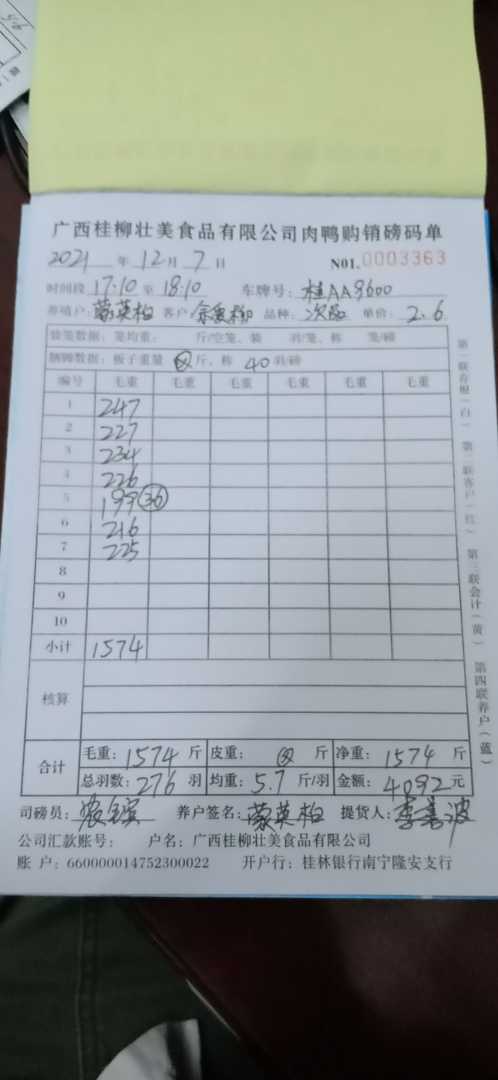 广西桂柳壮美食品有限公司肉鸭购销磅码单
2021 年 12 月 7 日 N01. 0003363
时间段 17:10 至 18:10 车牌号: 桂AA9600
养殖户: 蒙英柏 客户 品种: 次品 单价: 2.6
装笼数据: 笼均重: 斤/空笼、装 羽/笼、称 笼/磅
捆脚数据: 板子重量 斤、称 40 羽/磅
编号 毛重 毛重 毛重 毛重 毛重 毛重
1 247
2 227
3 234
4 226
5 199 36
6 216
7 225
8
9
10
小计 1574
核算
合计 毛重: 1574 斤 皮重: 斤 净重: 1574 斤
总羽数: 276 羽 均重: 5.7 斤/羽 金额: 4092 元
司磅员: 养户签名: 蒙英柏 提货人: 李善波
公司汇款账号: 户名: 广西桂柳壮美食品有限公司
账 户: 660000014752300022 开户行: 桂林银行南宁隆安支行
第一联存根(白) 第二联客户(红) 第三联会计(黄) 第四联养户(蓝)